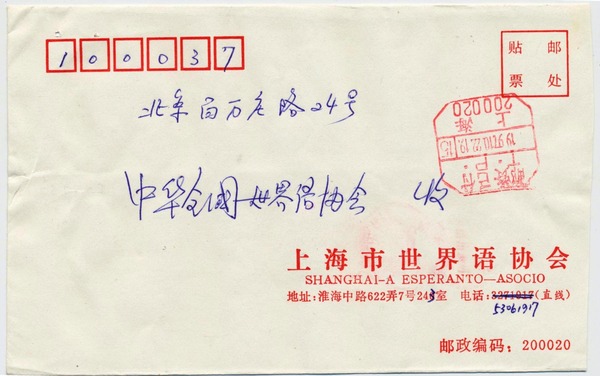 100037
贴 邮
票 处
北京百万庄路24号
200020
上海
1997.10.22.19
邮资已付
中华全国世界语协会 收
上海市世界语协会
SHANGHAI-A ESPERANTO—ASOCIO
地址:淮海中路622弄7号243室 电话:3271017(直线)
53061917
邮政编码:200020